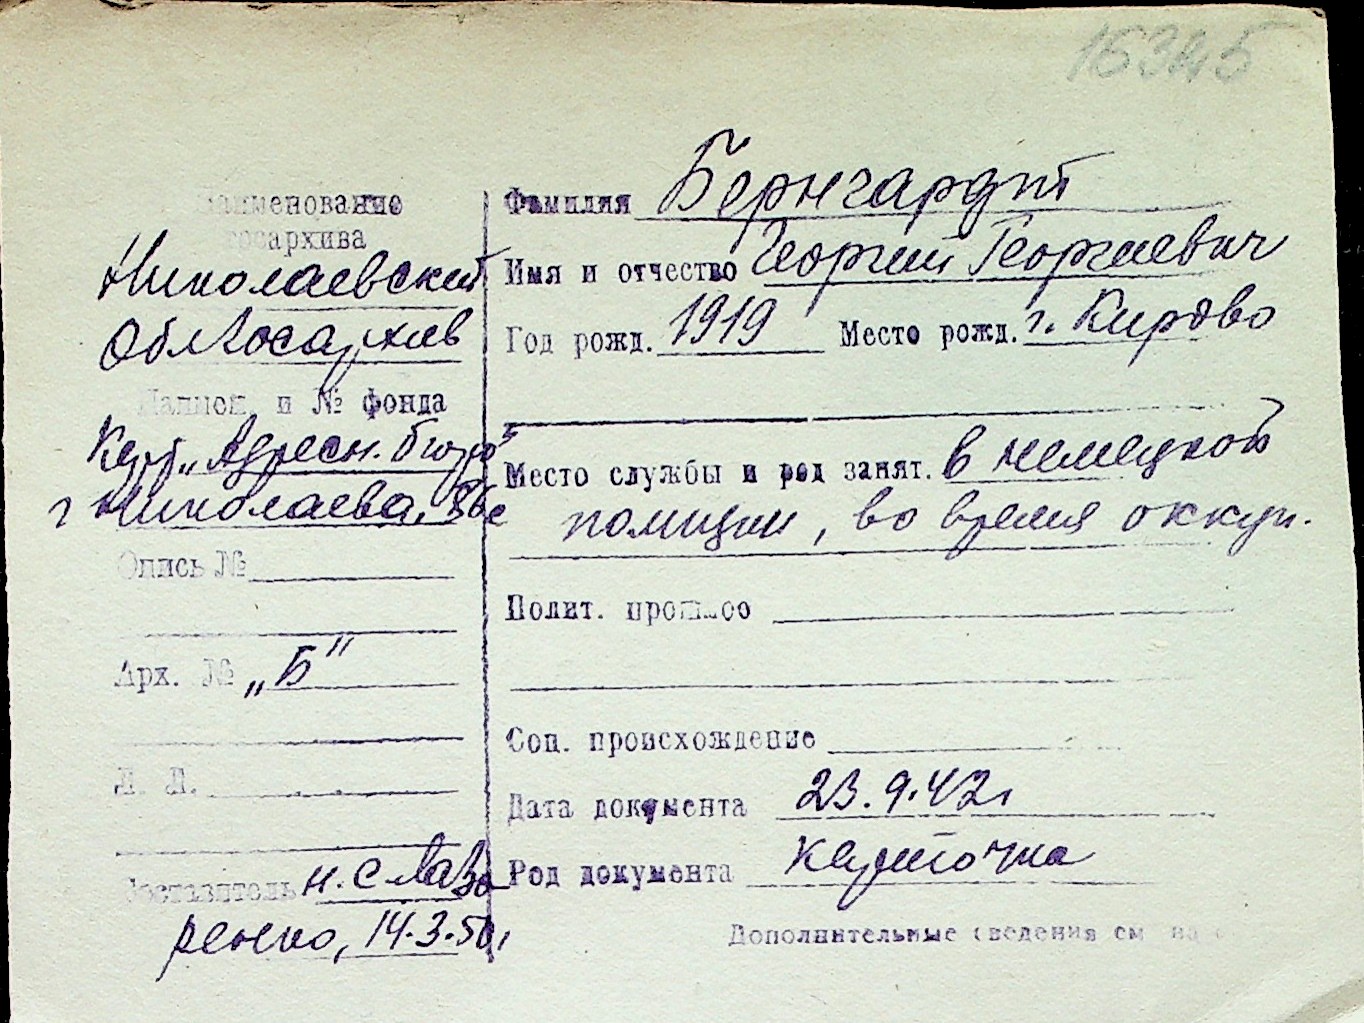 Наименование
госархива
Николаевский
Облгосархив
Наимен. и № фонда
Карт. „Адресн. бюро"
г Николаева,
Опись №
Арх. № „Б"
Л. Л.
Составитель н. с Лаза
ренко, 14.3.50г
Фамилия Бернгардт
Имя и отчество Георгий Георгиевич
Год рожд. 1919 Место рожд. г. Кирово
Место службы и род занят. в немецкой
полиции, во время оккуп.
Полит. прошлое
Соц. происхождение
Дата документа 23.9.42г
Род документа карточка
Дополнительные сведения см на